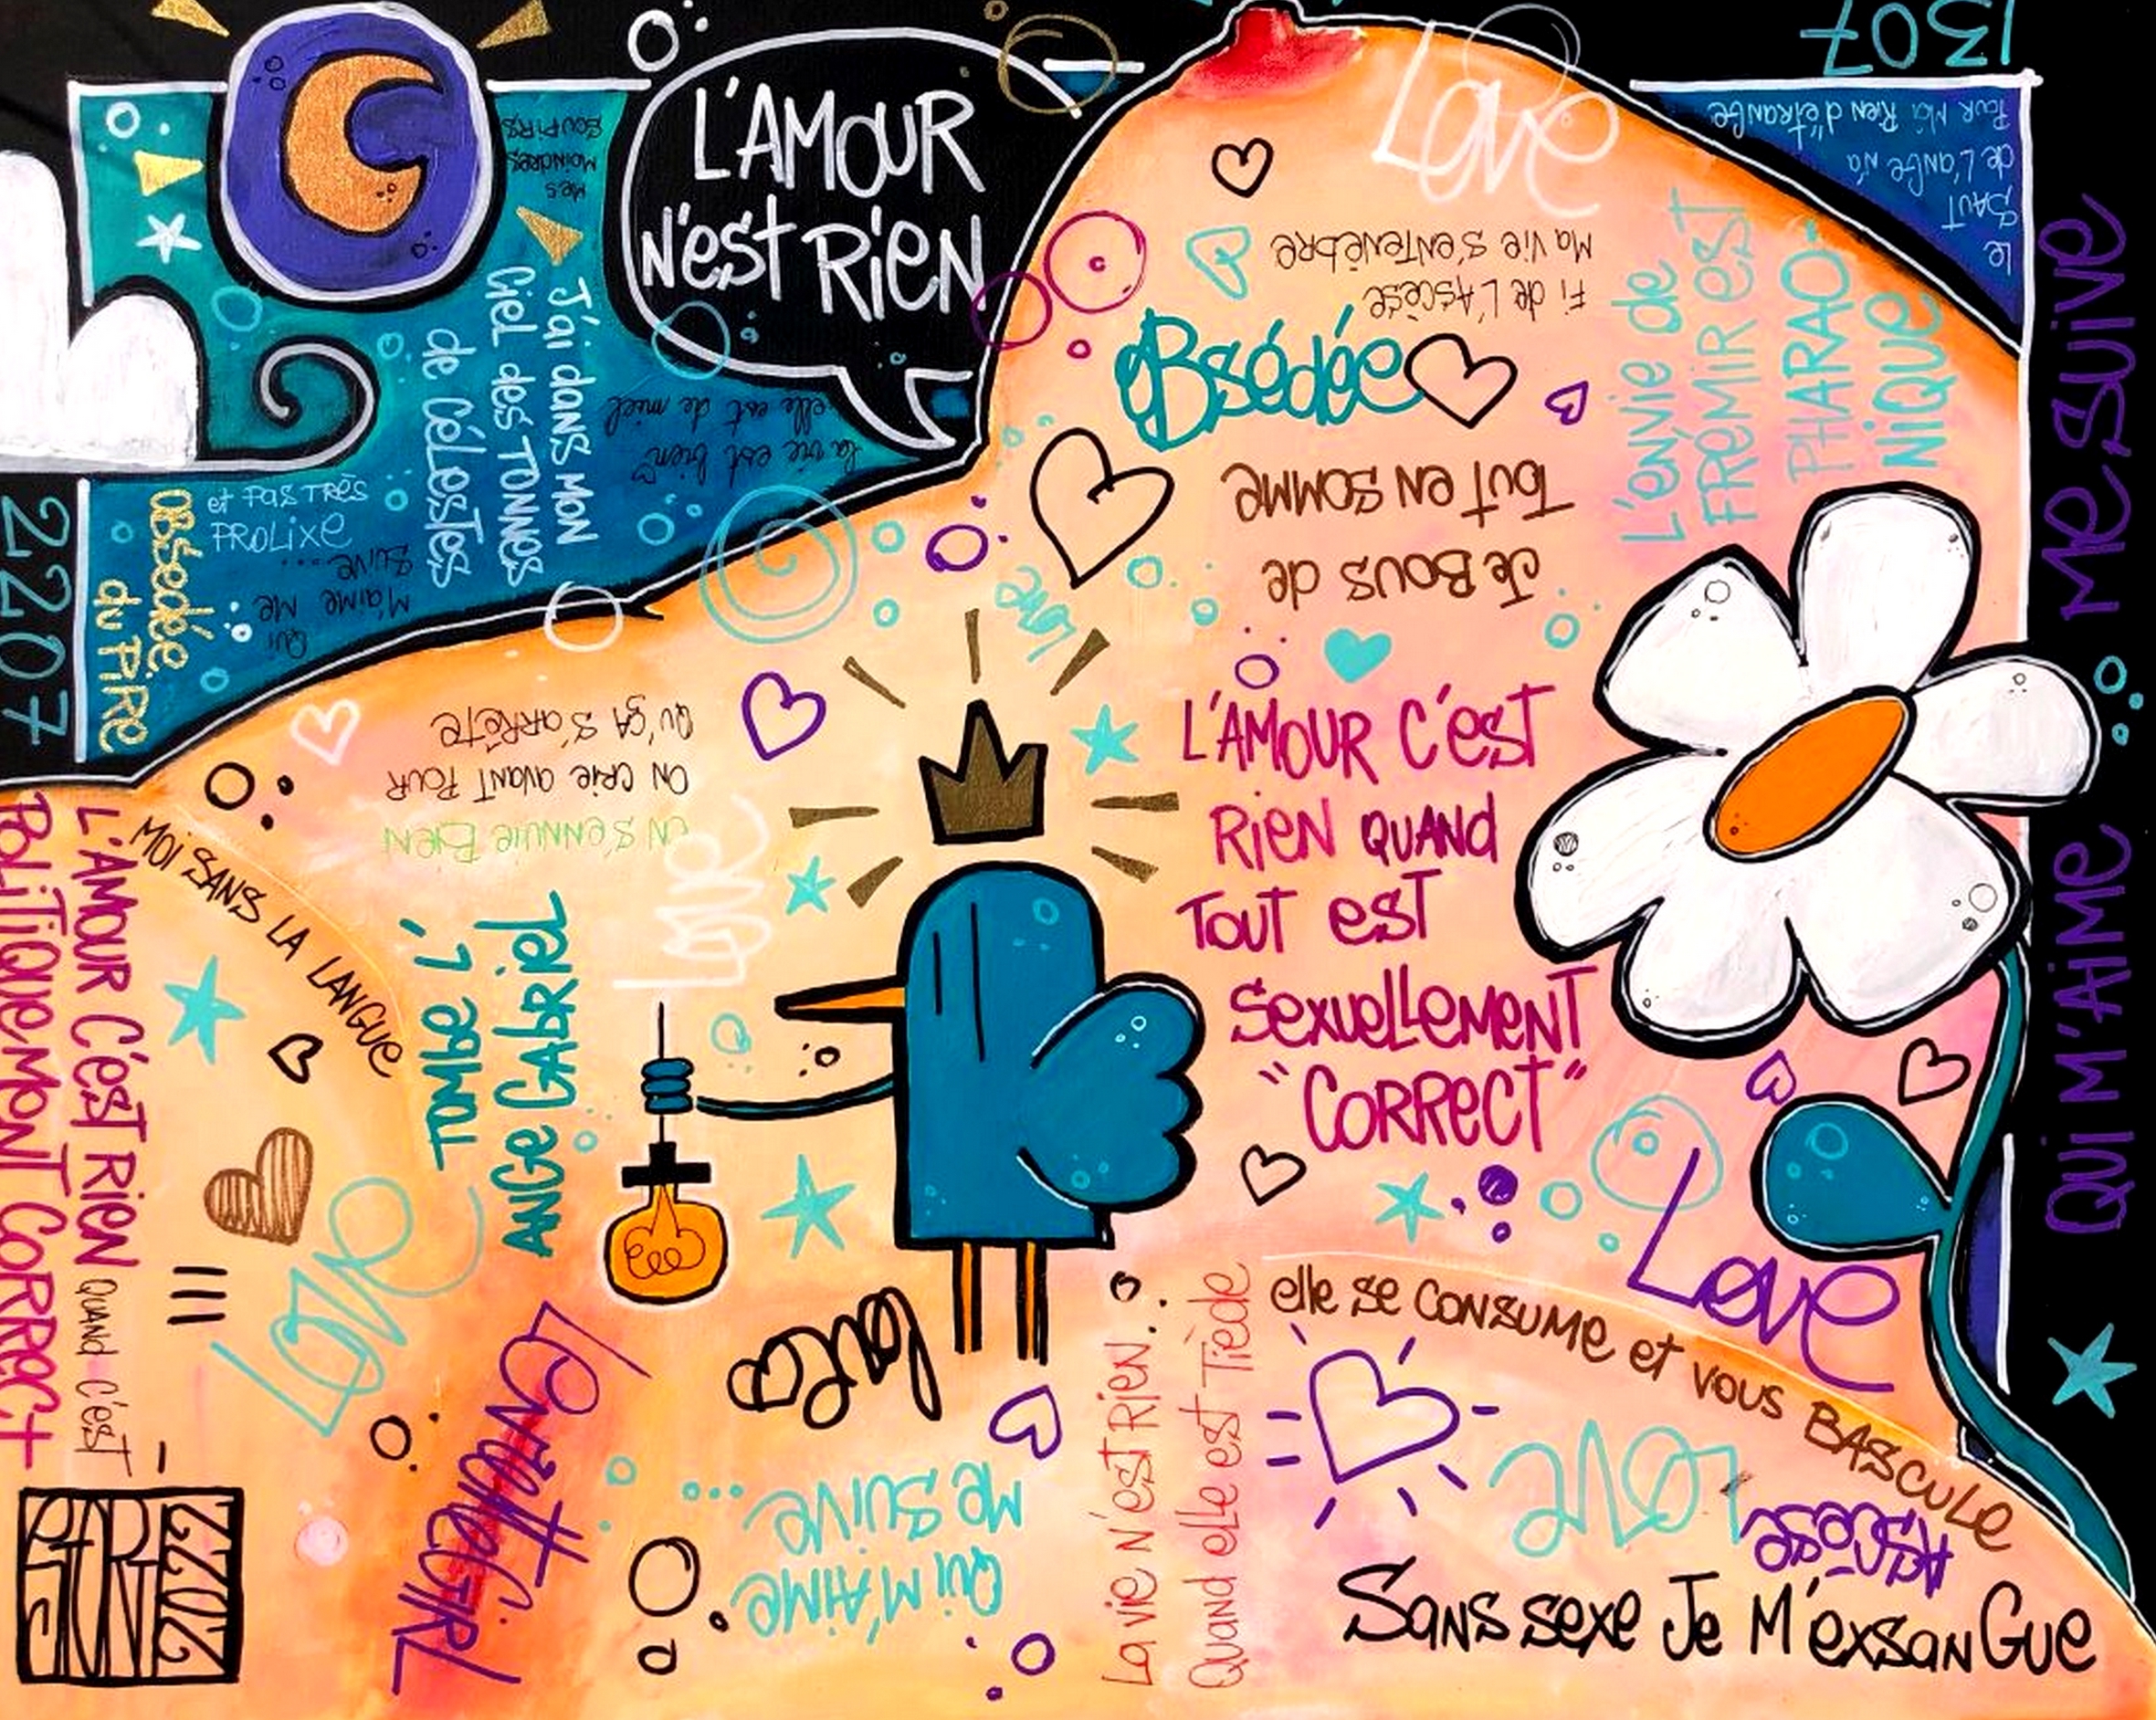 L'AMOUR
N'EST RIEN
Mes
MOINDRES
SOUPIRS
J'ai DANS MON
Ciel des TONNES
de CÉLESTES
la vie est bien
elle est de miel
2207
OBSédée
du PIRE
et PAS TRÈS
PROLIXE
Qui
M'AIME Me
SUIVE....
1307
Le
SAUT
de L'ANGE N'A
Pour MOi Rien d'étrange
Love
Fi de L'Ascèse
Ma Vie S'entenèbre
OBsédée
L'envie de
FRÉMIR EST
PHARAO-
NIQUE
Je BOUS de
Tout en SOMME
Love
QUI M'AIME
Me SUIVE
L'AMOUR C'est
RIEN QUAND
TOUT EST
Sexuellement
"CORRECT"
ON S'ENNUIE BIEN
ON CRIE AVANT POUR
QU'ÇA S'ARRÊTE
Love
L'AMOUR C'EST RIEN QUAND C'EST
POLITIQUEMENT CORRECT
MOI SANS LA LANGUE
TOMBE L'
ANGE GABRIEL
Love
love
Love
elle se CONSUME et VOUS BASCULE
La vie N'est Rien...
Quand elle est Tiède
QUI M'AIME
Me SUIVE ...
LOVE
AScèse
SANS sexe Je M'exsanGue
2022